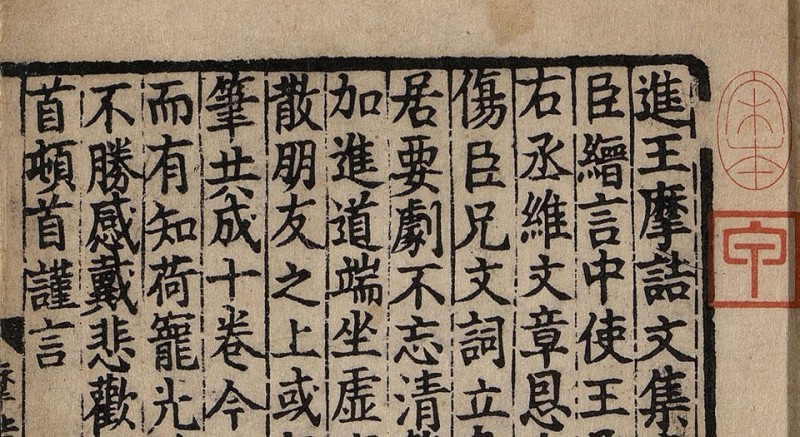 進王摩詰文集
臣縉言中使王
右丞維文章恩
傷臣兄文詞立
居要劇不忘清
加進道端坐虛
散朋友之上或
筆共成十卷今
而有知荷寵光
不勝感戴悲歡
首頓首謹言
宋本
甲